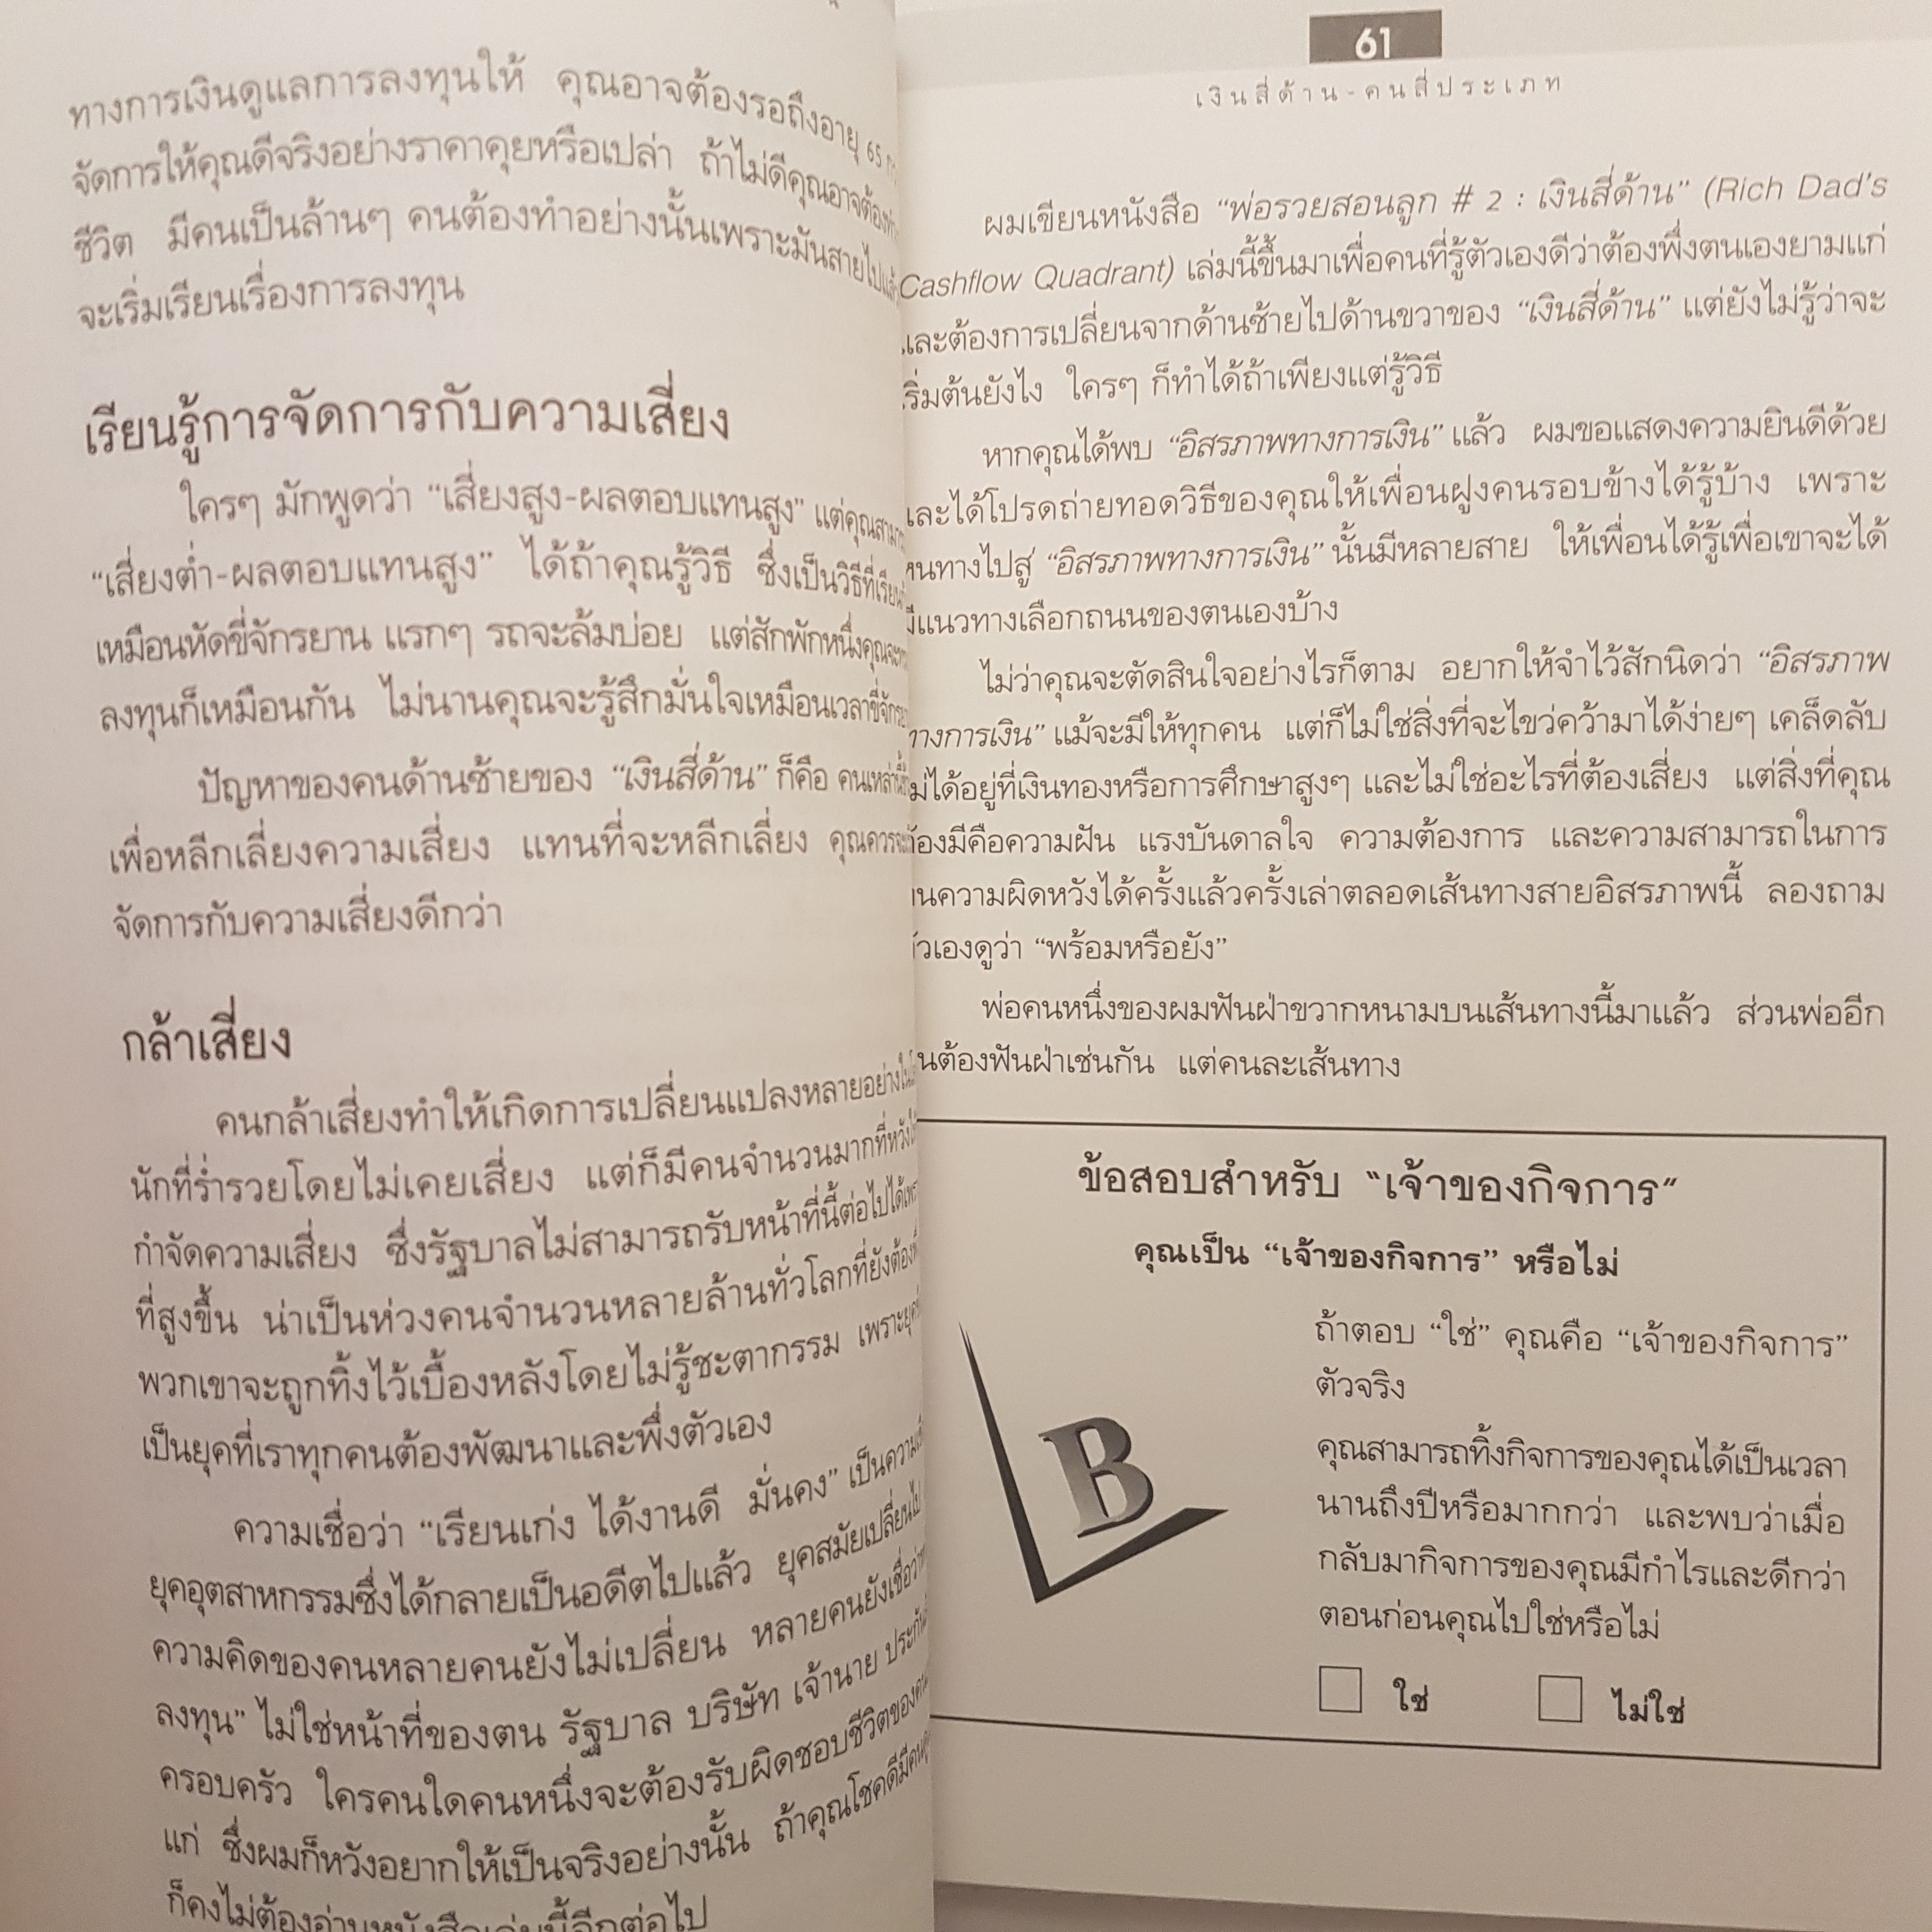 ทางการเงินดูแลการลงทุนให้ คุณอาจต้องรอถึงอายุ 65
จัดการให้คุณดีจริงอย่างราคาคุยหรือเปล่า ถ้าไม่ดีคุณอาจต้อง
ชีวิต มีคนเป็นล้านๆ คนต้องทำอย่างนั้นเพราะมันสายไป
จะเริ่มเรียนเรื่องการลงทุน
เรียนรู้การจัดการกับความเสี่ยง
ใครๆ มักพูดว่า “เสี่ยงสูง-ผลตอบแทนสูง” แต่คุณ
“เสี่ยงต่ำ-ผลตอบแทนสูง” ได้ถ้าคุณรู้วิธี ซึ่งเป็นวิธีที่
เหมือนหัดขี่จักรยาน แรกๆ รถจะล้มบ่อย แต่สักพักหนึ่งคุณจะ
ลงทุนก็เหมือนกัน ไม่นานคุณจะรู้สึกมั่นใจเหมือนเวลาขี่
ปัญหาของคนด้านซ้ายของ “เงินสี่ด้าน” ก็คือ คนเหล่านี้
เพื่อหลีกเลี่ยงความเสี่ยง แทนที่จะหลีกเลี่ยง คุณควรจะ
จัดการกับความเสี่ยงดีกว่า
กล้าเสี่ยง
คนกล้าเสี่ยงทำให้เกิดการเปลี่ยนแปลงหลายอย่าง
นักที่ร่ำรวยโดยไม่เคยเสี่ยง แต่ก็มีคนจำนวนมากที่หวัง
กำจัดความเสี่ยง ซึ่งรัฐบาลไม่สามารถรับหน้าที่นี้ต่อไปได้
ที่สูงขึ้น น่าเป็นห่วงคนจำนวนหลายล้านทั่วโลกที่ยังต้อง
พวกเขาจะถูกทิ้งไว้เบื้องหลังโดยไม่รู้ชะตากรรม เพราะ
เป็นยุคที่เราทุกคนต้องพัฒนาและพึ่งตัวเอง
ความเชื่อว่า “เรียนเก่ง ได้งานดี มั่นคง” เป็น
ยุคอุตสาหกรรมซึ่งได้กลายเป็นอดีตไปแล้ว ยุคสมัยเปลี่ยนไป
ความคิดของคนหลายคนยังไม่เปลี่ยน หลายคนยังเชื่อ
ลงทุน” ไม่ใช่หน้าที่ของตน รัฐบาล บริษัท เจ้านาย
ครอบครัว ใครคนใดคนหนึ่งจะต้องรับผิดชอบชีวิตของ
แก่ ซึ่งผมก็หวังอยากให้เป็นจริงอย่างนั้น ถ้าคุณโชคดี
ก็คงไม่ต้องอ่านหนังสือเล่มนี้อีกต่อไป
61
เงินสี่ด้าน-คนสี่ประเภท
ผมเขียนหนังสือ “พ่อรวยสอนลูก # 2 : เงินสี่ด้าน” (Rich Dad's
Cashflow Quadrant) เล่มนี้ขึ้นมาเพื่อคนที่รู้ตัวเองดีว่าต้องพึ่งตนเองยามแก่
และต้องการเปลี่ยนจากด้านซ้ายไปด้านขวาของ “เงินสี่ด้าน” แต่ยังไม่รู้ว่าจะ
เริ่มต้นยังไง ใครๆ ก็ทำได้ถ้าเพียงแต่รู้วิธี
หากคุณได้พบ “อิสรภาพทางการเงิน” แล้ว ผมขอแสดงความยินดีด้วย
และได้โปรดถ่ายทอดวิธีของคุณให้เพื่อนฝูงคนรอบข้างได้รู้บ้าง เพราะ
หนทางไปสู่ “อิสรภาพทางการเงิน” นั้นมีหลายสาย ให้เพื่อนได้รู้เพื่อเขาจะได้
มีแนวทางเลือกถนนของตนเองบ้าง
ไม่ว่าคุณจะตัดสินใจอย่างไรก็ตาม อยากให้จำไว้สักนิดว่า “อิสรภาพ
ทางการเงิน” แม้จะมีให้ทุกคน แต่ก็ไม่ใช่สิ่งที่จะไขว่คว้ามาได้ง่ายๆ เคล็ดลับ
ไม่ได้อยู่ที่เงินทองหรือการศึกษาสูงๆ และไม่ใช่อะไรที่ต้องเสี่ยง แต่สิ่งที่คุณ
ต้องมีคือความฝัน แรงบันดาลใจ ความต้องการ และความสามารถในการ
ทนความผิดหวังได้ครั้งแล้วครั้งเล่าตลอดเส้นทางสายอิสรภาพนี้ ลองถาม
ตัวเองดูว่า “พร้อมหรือยัง”
พ่อคนหนึ่งของผมฟันฝ่าขวากหนามบนเส้นทางนี้มาแล้ว ส่วนพ่ออีก
คนต้องฟันฝ่าเช่นกัน แต่คนละเส้นทาง
ข้อสอบสำหรับ “เจ้าของกิจการ”
คุณเป็น “เจ้าของกิจการ” หรือไม่
ถ้าตอบ “ใช่” คุณคือ “เจ้าของกิจการ”
ตัวจริง
B
คุณสามารถทิ้งกิจการของคุณได้เป็นเวลา
นานถึงปีหรือมากกว่า และพบว่าเมื่อ
กลับมากิจการของคุณมีกำไรและดีกว่า
ตอนก่อนคุณไปใช่หรือไม่
ใช่ ไม่ใช่